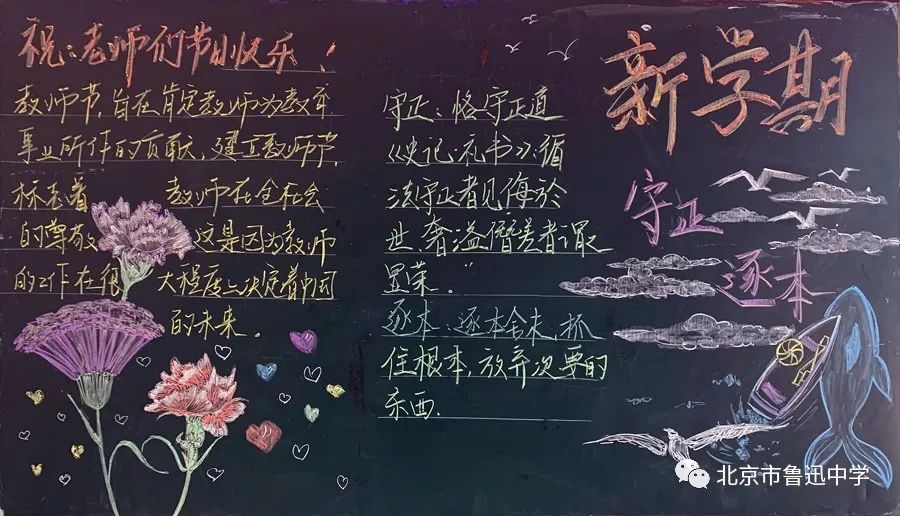 祝:老师们节日快乐!
教师节,旨在肯定教师为教育
事业所作的贡献,建立教师节,
标志着 教师在全社会
的尊敬 这是因为教师
的工作在很 大程度上决定着中国
的未来。
守正:恪守正道
《史记·礼书》:循
法守正者见侮於
世,奢溢僭差者谓
显荣。
逐本:逐本舍末,抓
住根本,放弃次要的
东西.
新学期
守正
逐本
北京市鲁迅中学